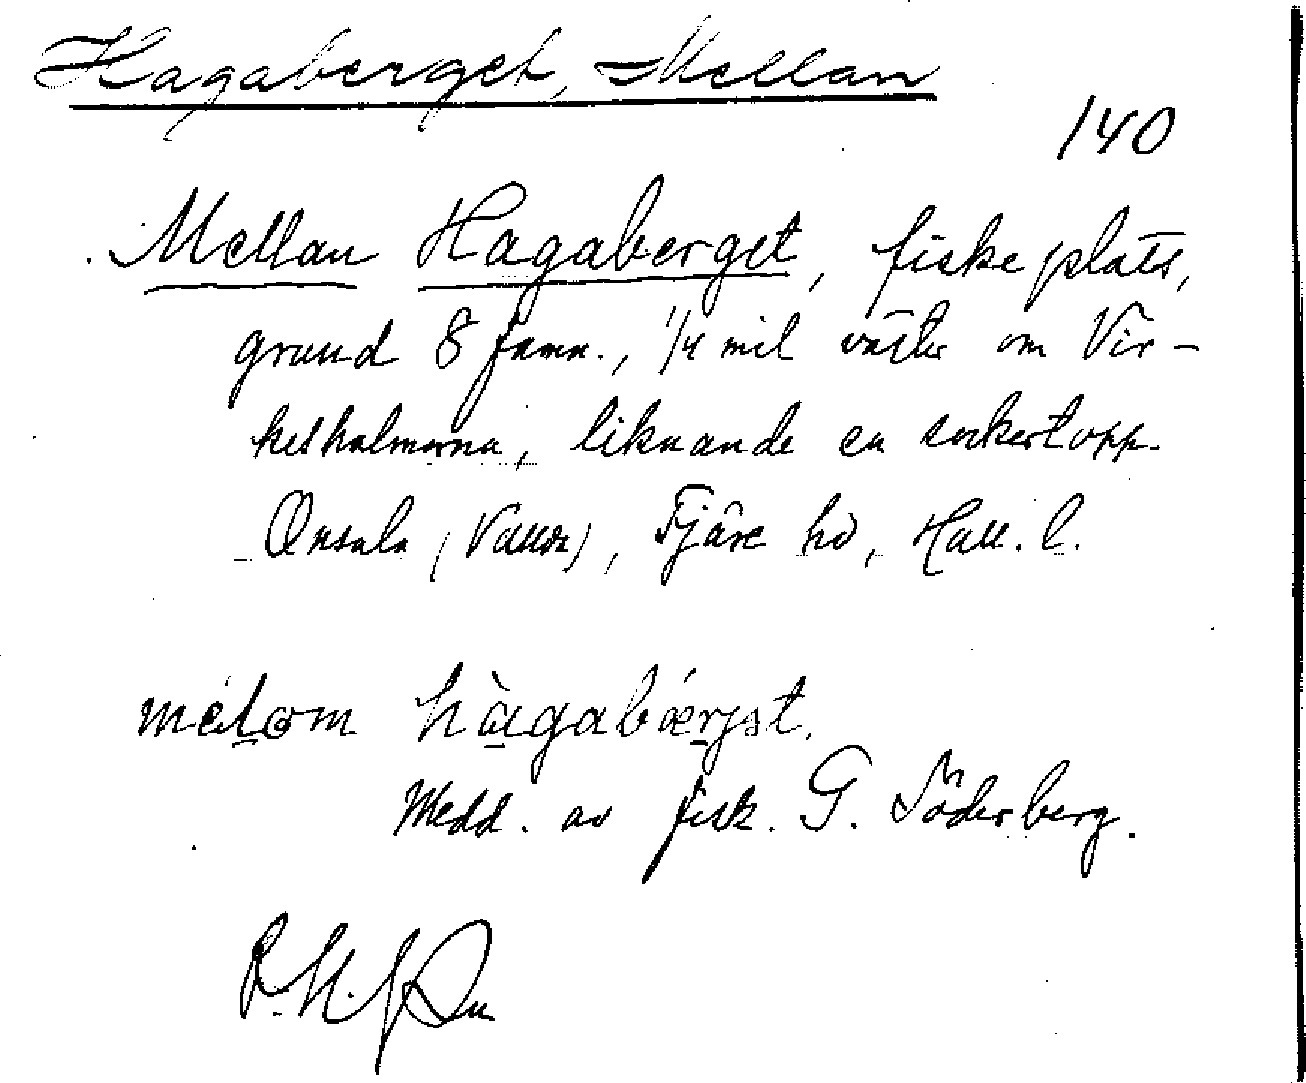 Hagaberget, Mellan
140
Mellan Hagaberget, fiskeplats,
grund 8 famn., 1/4 mil väster om Vir-
helholmarna, liknande en sockertopp.
Onsala (Vallda), Fjäre hd, Hall. l.
hàgabǽrjət.
Medd. av fisk. G. Söderberg.